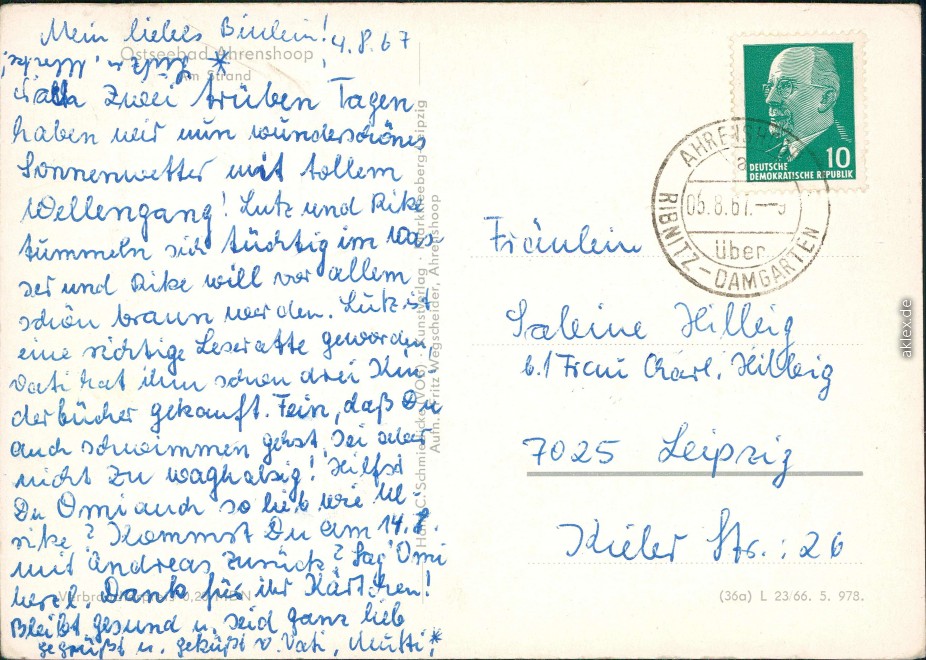 Mein liebes Binlein! 4.8.67
Ostseebad Ahrenshoop
Am Strand
Nach zwei trüben Tagen
haben wir nun wunderschönes
Sonnenwetter mit tollem
Wellengang! Lutz und Rike
tummeln sich tüchtig im Was-
ser und Rike will vor allem
schön braun werden. Lutz ist
eine richtige Leseratte geworden,
Vati hat ihm schon drei Kin-
derbücher gekauft. Fein, daß Du
auch schwimmen gehst. Sei aber
nicht zu waghalsig! Hilfst
Du Omi auch so lieb wie Ul
rike? Kommst Du am 14.8.
mit Andreas zurück? Sag' Omi
herzl. Dank für ihr Kärtchen!
Bleibt gesund u. seid ganz lieb
gegrüßt u. geküßt v. Vati, Mutti, *
* Lutz u. Ulrike!
Verbraucherpreis 0,20 MDN
Aufn.: Fritz Wegscheider, Ahrenshoop
DEUTSCHE
DEMOKRATISCHE REPUBLIK
10
AHRENSH
a
05.8.67.--9
über
RIBNITZ-DAMGARTEN
Fräulein
Sabine Hillbig
b./Frau Charl. Hillbig
7025 Leipzig
Kieler Str.: 26
(36a) L 23/66. 5. 978.
aklex.de